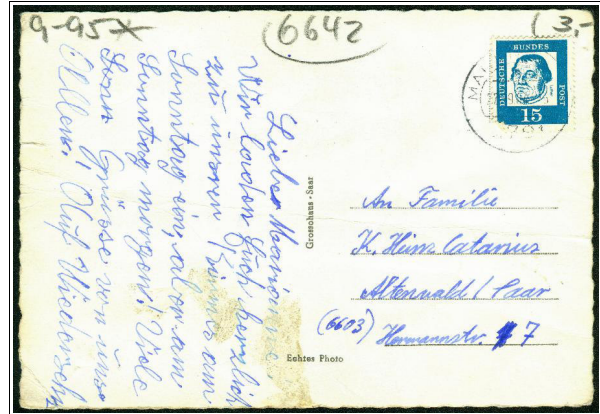 9-95
6642
3,-
DEUTSCHE
BUNDES
POST
15
Liebe Marianne
Wir laden Euch herzlich
zu unserer Kirmes am
Sonntag ein, also am
Sonntag morgen. Viele
Grüsse von
Eltern. Auf Wiedersehn
Grossohaus - Saar
Echtes Photo
An Familie
K. Heinz Catarius
Altenwald / Saar
(6603) Hermannstr. 7